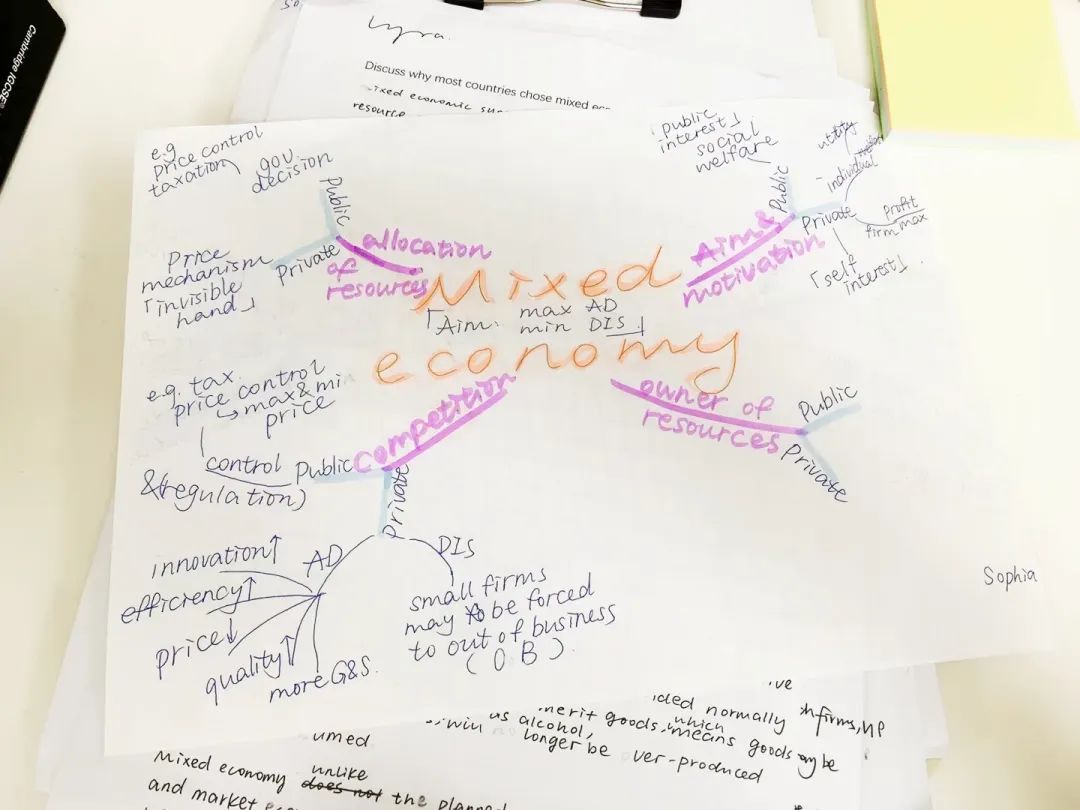 Cambridge IGCSE
so
Lyra.
Discuss why most countries chose mixed
mixed economic
resource
e.g
price control
taxation
gov
decision
Public
Private
allocation
of
resources
Price
mechanism
「invisible
hand」
「public
interest」
social
welfare
Public
utility
individual
Private
profit
firm max
「self
interest」.
Aim &
motivation
Mixed
「Aim: max AD
min DIS」
economy
e.g. tax
price control
↳ max & min
price
control
&(regulation)
Public
competition
Private
AD
innovation↑
efficiency↑
price↓
quality↑
more G&S.
DIS
small firms
may be forced
to out of business
( O B ).
owner of
resources
Public
Private
Sophia
ive
ided normally firms, up
nerit goods. which means goods may be
us alcohol, longer be ver-produced
umed
Mixed economy unlike does not the planned
and market